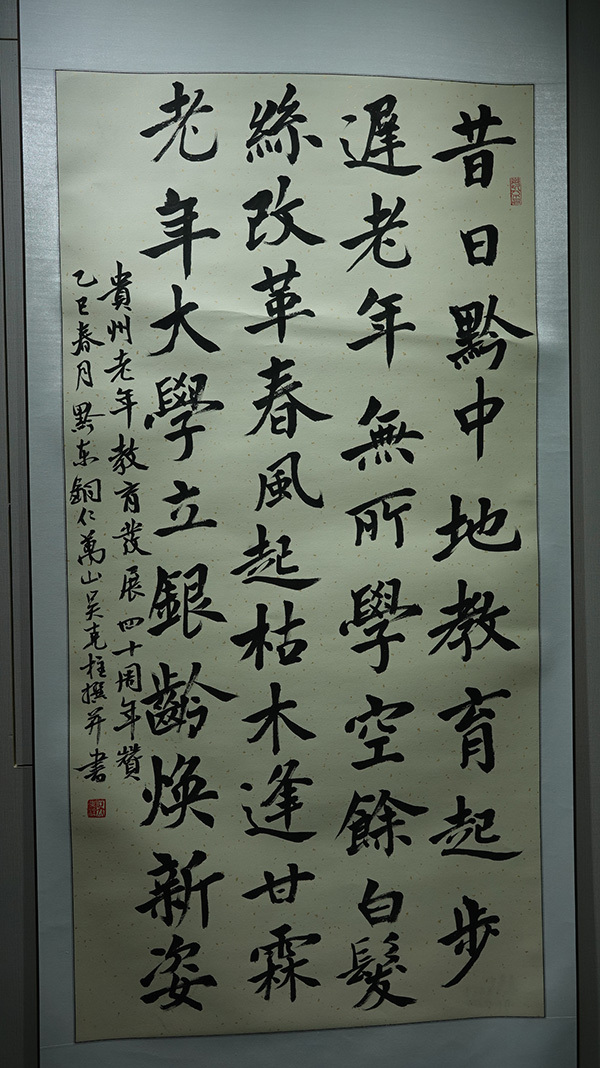 昔日黔中地教育起步
遲老年無所學空餘白髮
絲改革春風起枯木逢甘霖
老年大學立銀齡煥新姿
貴州老年教育發展四十周年贊
乙巳春月黔东銅仁萬山吴克柱撰并書